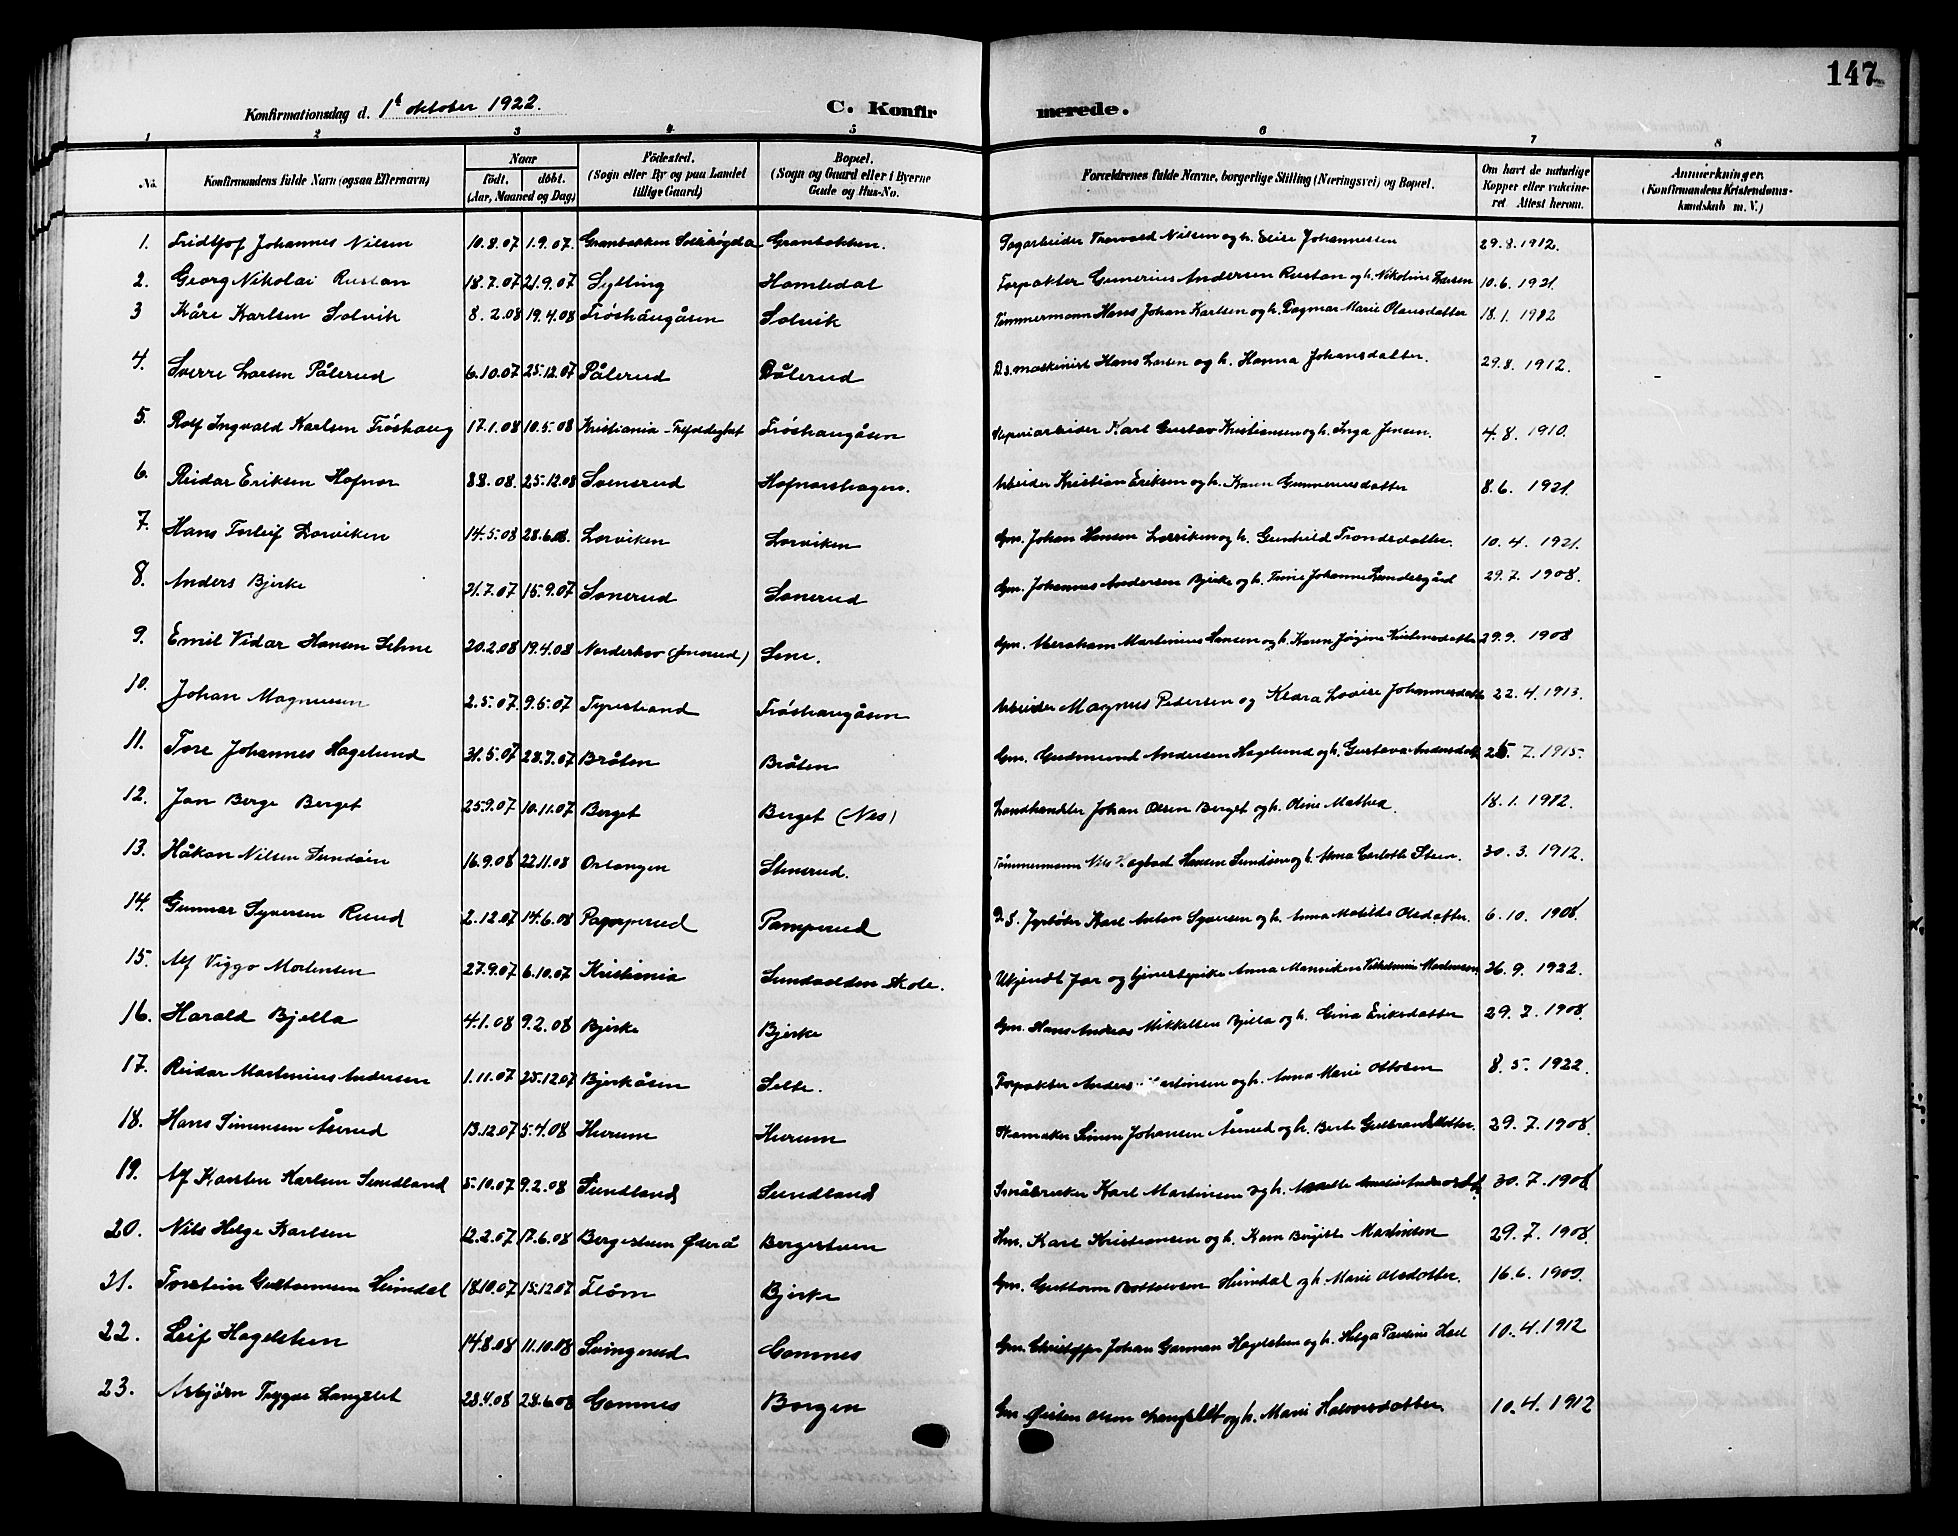 147
Konfirmationsdag d. 1ste oktober 1922. C. Konfirmerede.
1 2 3 4 5 6 7 8
No. Konfirmandens fulde Navn (ogsaa Efternavn) Naar født. døbt. (Aar, Maaned og Dag) Fødested. (Sogn eller By og paa Landet tillige Gaard) Bopæl. (Sogn og Gaard eller i Byerne Gade og Hus-No. Forældrenes fulde Navne, borgerlige Stilling (Næringsvei) og Bopæl. Om havt de naturlige Kopper eller vakcineret Attest herom. Anmærkninger. (Konfirmandens Kristendomskundskab m. V.)
1. Fridtjof Johannes Nilsen 10.8.07 1.9.07. Granbakken Sollihøgda Granbakken. Sagarbeider Thorvald Nilsen og h. Elise Johannessen 29.8.1912.
2. Georg Nikolai Rustan 18.7.07 21.9.07 Sylling Homledal Forpakter Gunerius Andersen Rustan og h. Nikoline Larsen 10.6.1921.
3 Kåre Karlsen Solvik 8.2.08 19.4.08 Frøshaugåsen Solvik Tømmermann Hans Johan Karlsen og h. Dagmar Marie Olausdatter 18.1.1912
4. Sverre Larsen Pålerud 6.10.07 25.12.07 Pålerud Pålerud D.s. maskinist Hans Larsen og h. Hanna Johansdatter. 29.8.1912.
5. Rolf Ingvald Karlsen Frøshaug 17.1.08 10.5.08 Kristiania - Trefoldighet Frøshaugåsen Papirarbeider Karl Gustav Kristiansen og h. Inga Jensen. 4.8.1910.
6. Reidar Eriksen Hafnor 8.8.08. 25.12.08 Svensrud Hafnorshagen. Arbeider Kristian Eriksen og h. Karen Gunneriusdatter 8.6.1921.
7. Hans Torleif Lorviken 14.5.08 28.6.08. Lorviken Lorviken Gm. Johan Hansen Lorviken og h. Gunhild Trondsdatter. 10.4.1921.
8. Anders Bjerke 21.7.07 15.9.07 Sonerud Sonerud Gm. Johannes Andersen Bjerke og h. Trine Johanne Lundesgård 29.7.1908.
9. Emil Vidar Hansen Sehne 20.2.08 19.4.08 Norderhov Sene. Gm. Abraham Martinius Hansen og h. Karen Jørgine 29.9.1908
10. Johan Magnussen 2.5.07. 9.6.07 Tyristrand Frøshaugåsen Arbeider Magnus Pedersen og Klara Lovise Johannesdatt 22.4.1913.
11. Tore Johannes Hagelund 31.5.07 28.7.07 Bråten Bråten Gm. Gudmund Andersen Hagelund og h. Gustava Andersdatt 25.7.1915.
12. Jan Berge Berget 25.9.07 10.11.07 Berget Berget (Nes) Landhandler Johan Olsen Berget og h. Oline Mathea 18.1.1912.
13. Håkon Nilsen Sundøen 16.9.08 22.11.08 Orsangen Stenerud. Tømmermann Nils Hagbart Hansen Sundøen og h. Anna Carlotte Steen. 30.3.1912.
14. Gunnar Syversen Ruud 2.12.07 14.6.08 Pamperud Pamperud D.S. fyrbøter Karl Anton Syversen og h. Anna Matilde Olsdatter. 6.10.1908.
15. Alf Viggo Mortensen 27.9.07 6.10.07 Kristiania Sundvolden skole. Ukjendt far og tjenestepike Anna Vilhelmine Mortensen 26.9.1922.
16. Harald Bjella 4.1.08 9.2.08 Bjerke Bjerke Gm. Hans Andreas Mikkelsen Bjella og h. Gina Eriksdatter 29.7.1908.
17. Reidar Martinius Andersen 1.11.07 25.12.07 Bjerkåsen Selte. Forpakter Anders Martinsen og h. Anna Marie Ottosen 8.5.1922.
18. Hans Simensen Åserud 13.12.07 5.4.08 Hurum Hurum Skomaker Simen Johansen Åserud og h. Berte Gulbrandsdatter. 29.7.1908.
19. Alf Karsten Karlsen Sundland 5.10.07 9.2.08 Sundland Sundland Småbruker Karl Martinsen og h. 30.7.1908
20. Nils Helge Karlsen 12.2.07 17.6.08 Bergesteen Øderå Bergesteen Hm. Karl Kristiansen og h. Karen Birgitte Martinsen 29.7.1908.
21. Torstein Guttormsen Heimdal 18.10.07 15.12.07 Fløm Bjerke Gm. Guttorm Bottolvsen Heimdal og h. Marie Olsdatter. 16.6.1909.
22. Leif Hagelsteen 14.8.08 11.10.08 Svingerud Gomnes Gm. Christopher Johan Garman Hagelsteen og h. Helga Pauline 10.4.1912
23. Asbjørn Trygve Langslet 28.4.08 28.6.08 Gomnes Borgen Gm Øisten Olsen Langslet og h. Marie Halvorsdatter 10.4.1912